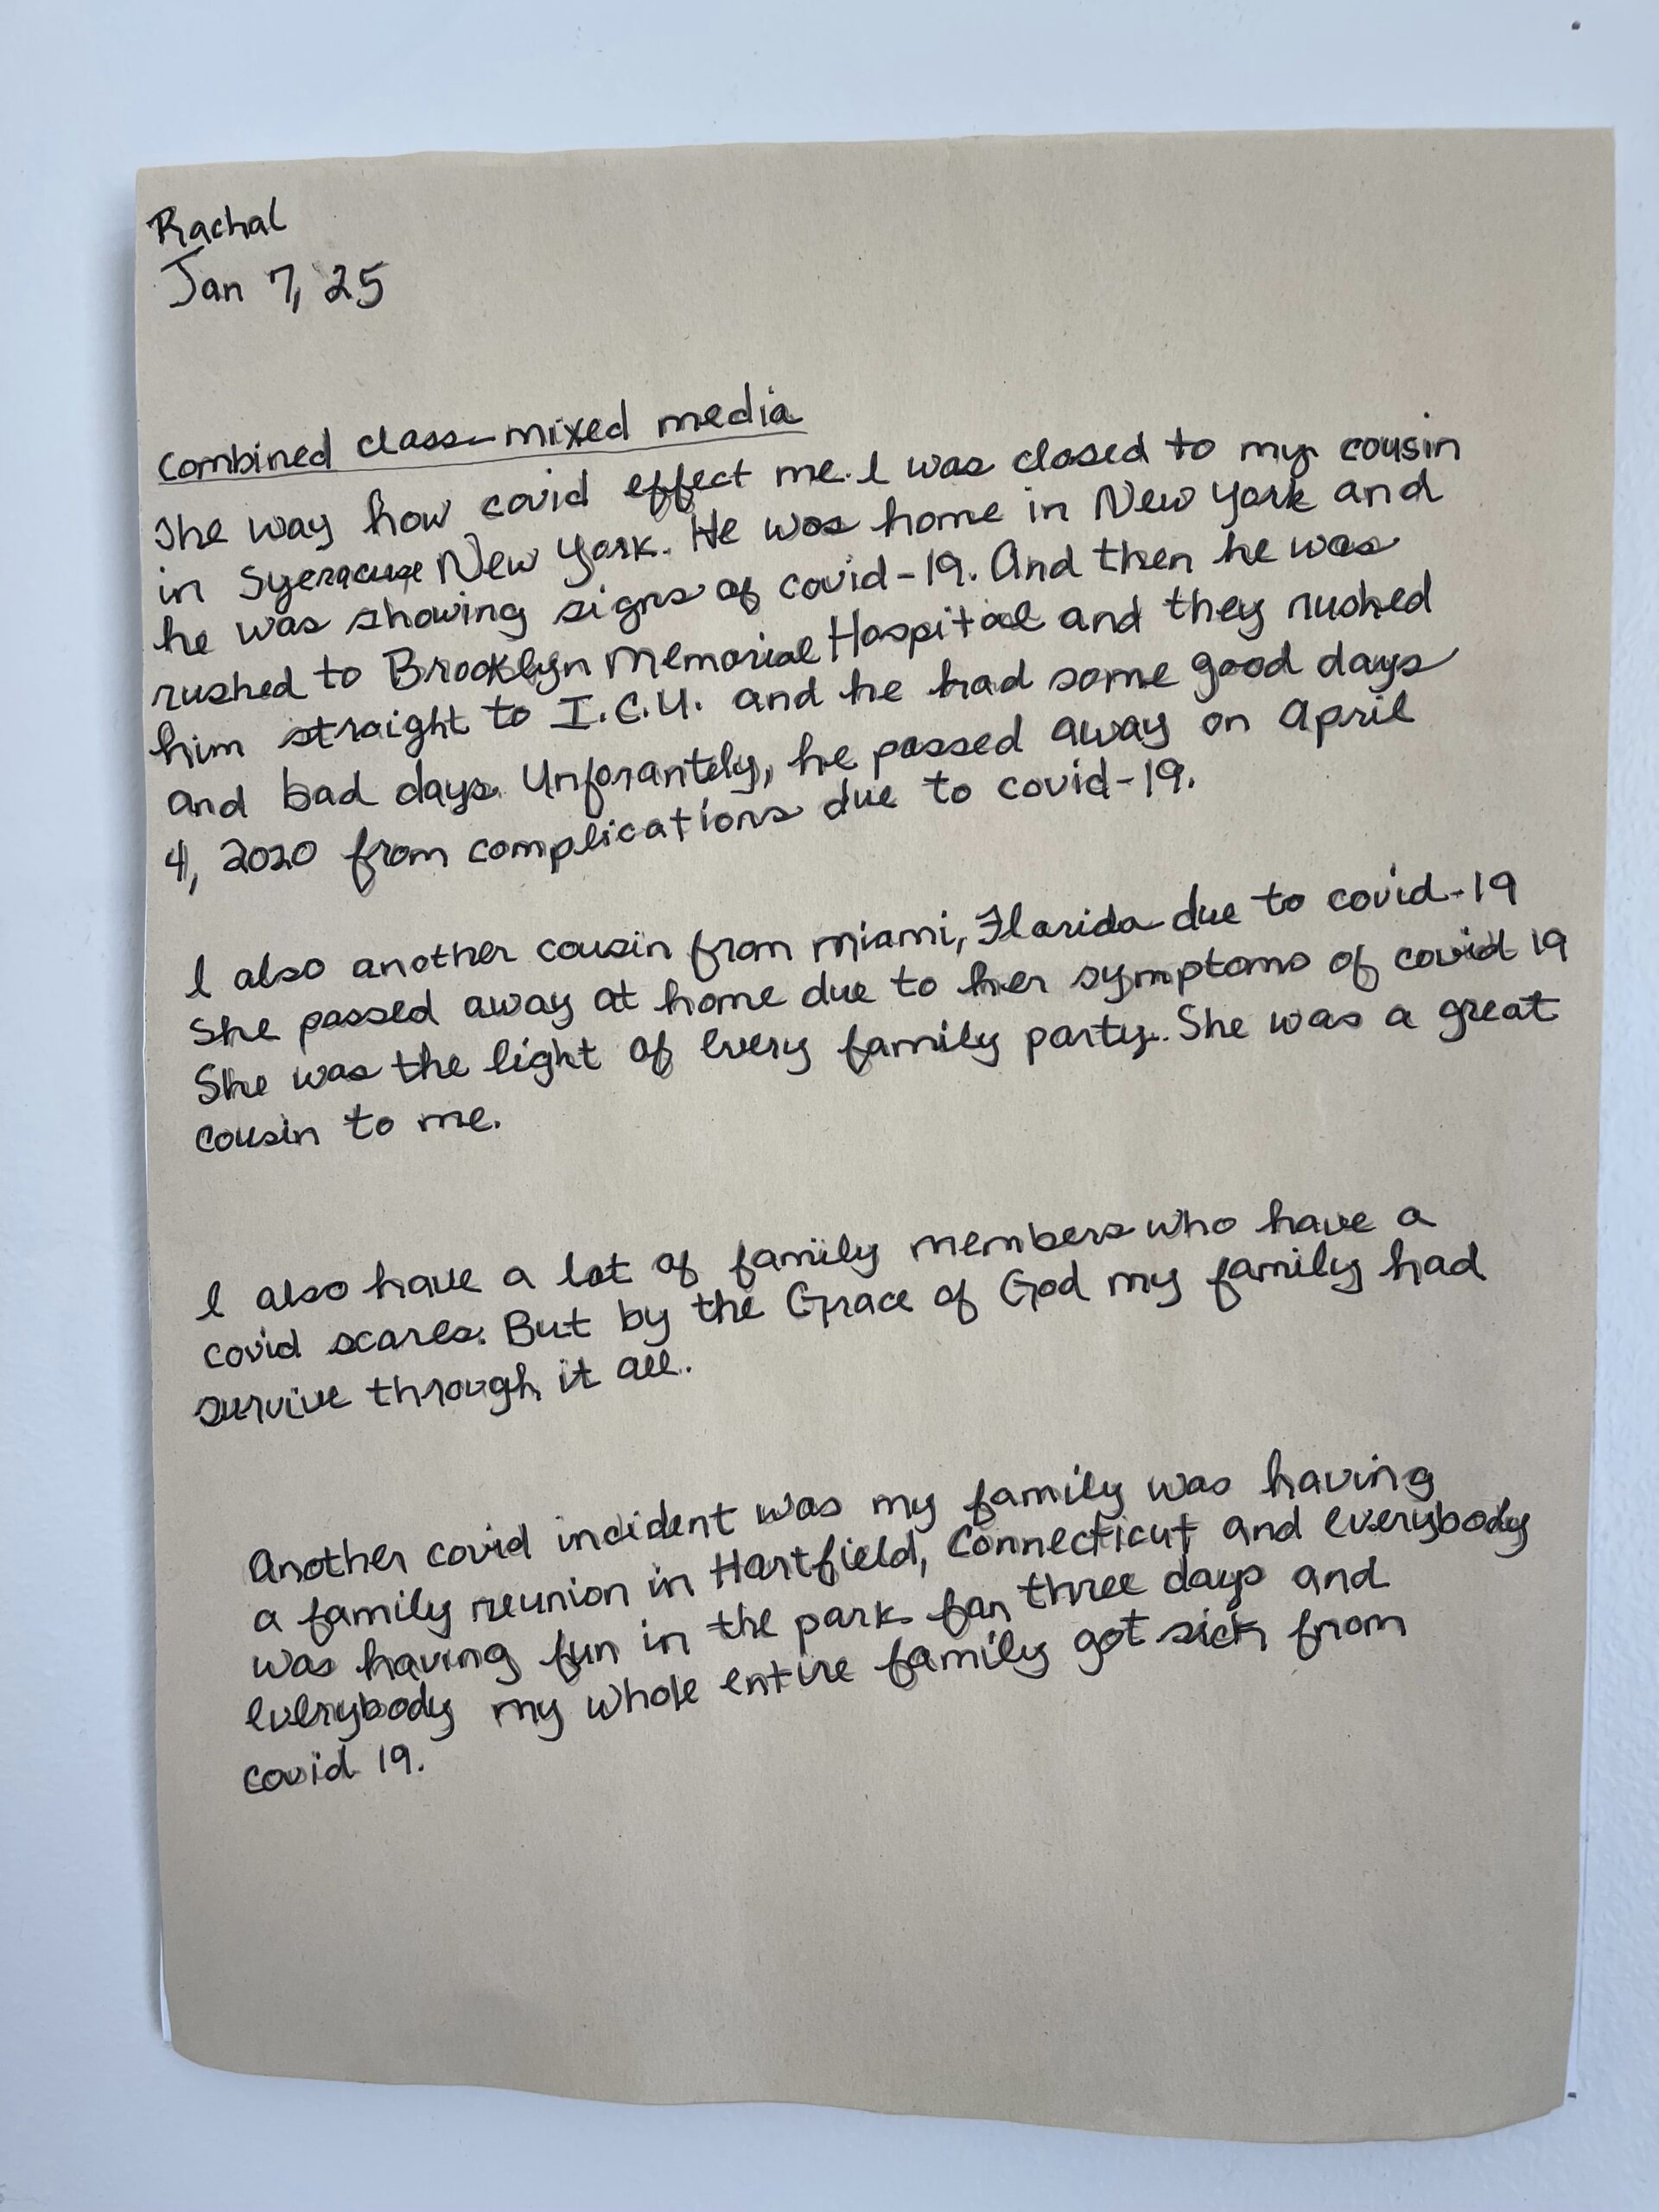 Rachal
Jan 7, 25
Combined class-mixed media
The way how covid effect me. I was closed to my cousin
in Syeracuse New York. He was home in New York and
he was showing signs of covid-19. And then he was
rushed to Brooklyn Memorial Hospital and they rushed
him straight to I.C.U. and he had some good days
and bad days. Unforantely, he passed away on April
4, 2020 from complications due to covid-19.
I also another cousin from Miami, Florida due to covid-19
She passed away at home due to her symptoms of covid 19
She was the light of every family party. She was a great
cousin to me.
I also have a lot of family members who have a
covid scares. But by the Grace of God my family had
survive through it all.
Another covid incident was my family was having
a family reunion in Hartfield, Connecticut and everybody
was having fun in the park for three days and
everybody my whole entire family got sick from
covid 19.